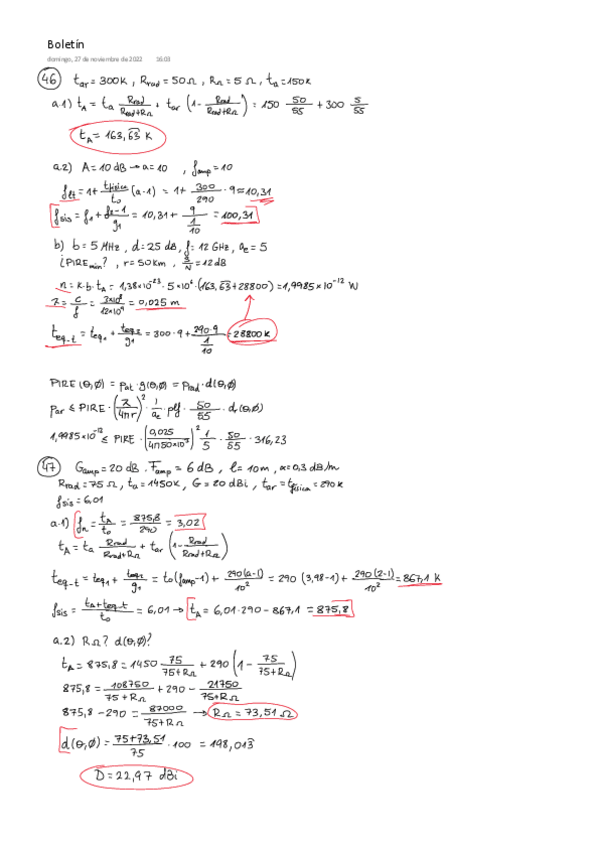 Boletín
domingo, 27 de noviembre de 2022 16:03
46 t_ar = 300K , R_rad = 50Ω , R_Ω = 5 Ω , t_a = 150K
a.1) t_A = t_a R_rad/(R_rad+R_Ω) + t_ar (1 - R_rad/(R_rad+R_Ω)) = 150 50/55 + 300 5/55
t_A = 163,63 K
a.2) A = 10 dB → a = 10 , f_amp = 10
f_LT = 1 + t_física/t_0 (a-1) = 1 + 300/290 · 9 = 10,31
f_sis = f_1 + (f_2-1)/g_1 = 10,31 + 9/(1/10) = 100,31
b) b = 5 MHz , d = 25 dB, f = 12 GHz, a_e = 5
¿PIRE_min? , r = 50Km , S/N = 12 dB
n = K·b·t_A = 1,38×10^-23 · 5×10^6 · (163,63 + 28800) = 1,9985×10^-12 W
λ = c/f = 3×10^8/12×10^9 = 0,025 m
t_eq-t = t_eq1 + t_eq2/g_1 = 300·9 + 290·9/(1/10) = 28800 K
PIRE (θ,φ) = p_et · g(θ,φ) = p_rad · d(θ,φ)
p_ar ≤ PIRE · (λ/4πr)^2 · 1/a_e · plf · 50/55 · d(θ,φ)
1,9985×10^-12 ≤ PIRE · (0,025/4π50×10^3)^2 · 1/5 · 50/55 · 316,23
47 G_amp = 20 dB . F_amp = 6 dB , l = 10m , α = 0,3 dB/m
R_rad = 75 Ω , t_a = 1450K , G = 20 dBi , t_ar = t_física = 290 K
f_sis = 6,01
a.1) f_a = t_A/t_0 = 875,8/290 = 3,02
t_A = t_a R_rad/(R_rad+R_Ω) + t_ar (1 - R_rad/(R_rad+R_Ω))
t_eq-t = t_eq1 + t_eq2/g_1 = t_0(f_amp-1) + 290(a-1)/10^2 = 290 (3,98-1) + 290(2-1)/10^2 = 867,1 K
f_sis = (t_A + t_eq-t)/t_0 = 6,01 → t_A = 6,01·290 - 867,1 = 875,8
a.2) R_Ω? d(θ,φ)?
t_A = 875,8 = 1450 75/(75+R_Ω) + 290 (1 - 75/(75+R_Ω))
875,8 = 108750/(75+R_Ω) + 290 - 21750/(75+R_Ω)
875,8 - 290 = 87000/(75+R_Ω) → R_Ω = 73,51 Ω
d(θ,φ) = (75+73,51)/75 · 100 = 198,013
D = 22,97 dBi